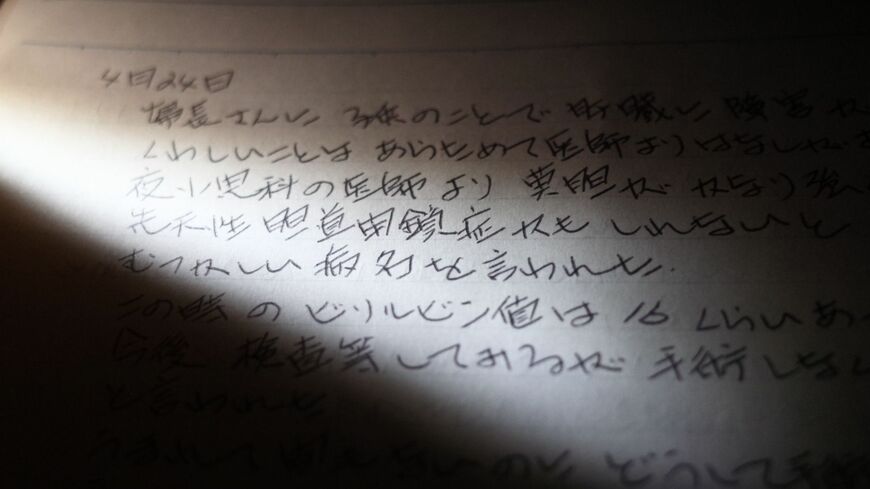 4月24日
婦長さんに 子供のことで 肝臓に 障害が
くわしいことは あらためて医師よりはなしがあ
夜 小児科の医師より 黄胆が かなり強
先天性 胆道閉鎖症かも しれないと
むつかしい 病名を言われた.
この時 の ビリルビン値は 16 くらいあ
今後 検査等しておるが 手術しな
と言われた
うまれて 間もないのに どうして手術